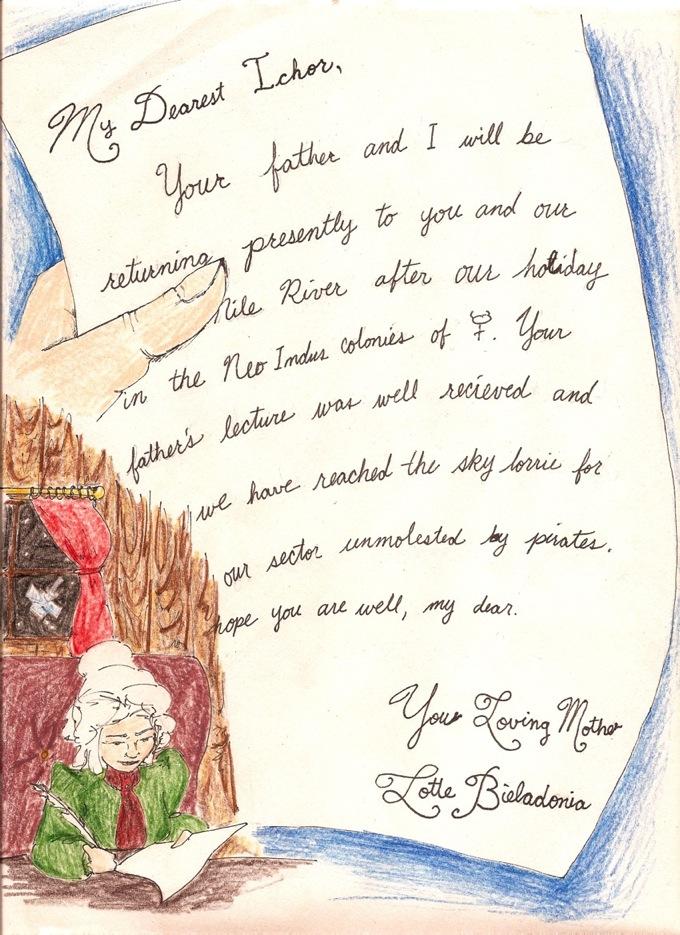 My Dearest Ichor,
Your father and I will be
returning presently to you and our
Nile River after our holiday
in the Neo Indus colonies of ☿. Your
father's lecture was well recieved and
we have reached the sky lorrie for
our sector unmolested by pirates.
hope you are well, my dear.
Your Loving Mother
Lotte Bieladonia